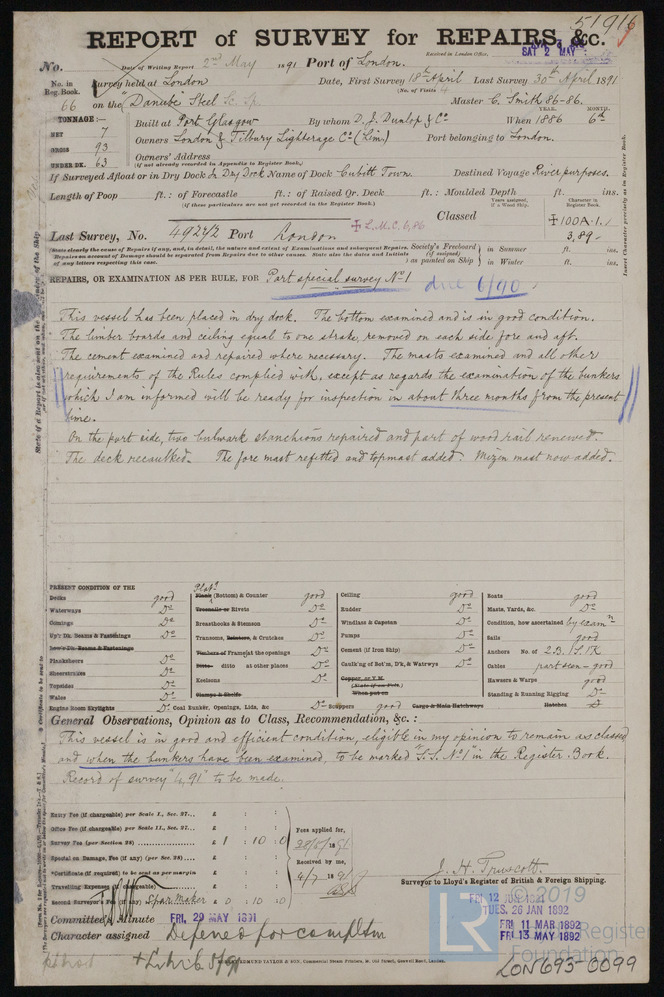 51916
REPORT of SURVEY for REPAIRS, &c.
Received in London Office,
SAT. 2 MAY
No.
Date of Writing Report 2nd May 1891 Port of London.
No. in Reg. Book.
Survey held at London Date, First Survey 18th April Last Survey 30th April 1891
(No. of Visits 4
66 on the Danube Steel Sc. Master C. Smith 86-86.
TONNAGE:— Built at Port Glasgow By whom D. J. Dunlop & Co When 1886 YEAR. MONTH. 6th
NET 7
Owners London & Tilbury Lighterage Co (Lim) Port belonging to London.
GROSS 93
Owners' Address
(if not already recorded in Appendix to Register Book.)
UNDER DK. 63
If Surveyed Afloat or in Dry Dock Dry Dock Name of Dock Cubitt Town. Destined Voyage River purposes.
Length of Poop ft.: of Forecastle ft.: of Raised Qr. Deck ft.: Moulded Depth ft. ins.
(If these particulars are not yet recorded in the Register Book.)
Years assigned, if a Wood Ship.
Character in Register Book.
Classed ✠100A.1.
3,89.
Last Survey, No. 49272 Port London ✠ L.M.C. 6,86
Society's Freeboard (if assigned) as painted on Ship
in Summer ft. ins.
in Winter ft. ins.
REPAIRS, OR EXAMINATION AS PER RULE, FOR Part special survey No 1 due 6/90
This vessel has been placed in dry dock. The bottom examined and is in good condition.
The limber boards and ceiling equal to one strake, removed on each side fore and aft.
The cement examined and repaired where necessary. The masts examined and all other
requirements of the Rules complied with, except as regards the examination of the bunkers
which I am informed will be ready for inspection in about three months from the present
time.
On the port side, two bulwark stanchions repaired and part of wood rail renewed.
The deck recaulked. The fore mast refitted and topmast added. Mizen mast now added.
PRESENT CONDITION OF THE
Decks good
Waterways Do
Comings Do
Up'r Dk. Beams & Fastenings Do
Low'r Dk. Beams & Fastenings
Planksheers Do
Sheerstrakes Do
Topsides Do
Wales Do
Engine Room Skylights Do
Plank (Bottom) & Counter good
Treenails or Rivets Do
Breasthooks & Stemson Do
Transoms, Pointers, & Crutches Do
Timbers of Frames at the openings Do
Ditto ditto at other places Do
Keelsons Do
Stamps & Shelfs
Coal Bunker, Openings, Lids, &c Do
Ceiling good
Rudder Do
Windlass & Capstan Do
Pumps Do
Cement (if Iron Ship) Do
Caulk'ng of Bot'm, D'k, & Watrwys Do
Copper, or Y.M.
(State if on Felt.)
When put on
Scuppers good
Cargo & Main Hatchways
Boats good
Masts, Yards, &c. Do
Condition, how ascertained by examn
Sails good
Anchors No. of 2.B. 1S. 1K
Cables part seen - good
Hawsers & Warps good
Standing & Running Rigging Do
Hatches Do
General Observations, Opinion as to Class, Recommendation, &c.:
This vessel is in good and efficient condition, eligible in my opinion to remain as classed
and when the bunkers have been examined, to be marked "S.S. No 1" in the Register Book.
Record of survey "4,91" to be made.
Entry Fee (if chargeable) per Scale I., Sec. 27... £ : :
Office Fee (if chargeable) per Scale II., Sec. 27... £ : :
Survey Fee (per Section 28) £ 1 : 10 : 0
Special on Damage, Fee (if any) (per Sec. 28) £ : :
*Certificate (if required) to be sent as per margin £ : :
Travelling Expenses (if chargeable) £ : :
Second Surveyor's Fee (if any) £ 0 : 10 : 0
Fees applied for,
Received by me,
4/7 1891
J. H. Truscott.
Surveyor to Lloyd's Register of British & Foreign Shipping.
Committee's Minute FRI. 29 MAY 1891
FRI 12 JUN 1891
TUES. 26 JAN 1892
FRI 11 MAR 1892
FRI. 13 MAY 1892
Character assigned Deferred for compltn
© 2019
LR
Lloyd's Register
Foundation
LON693-0099